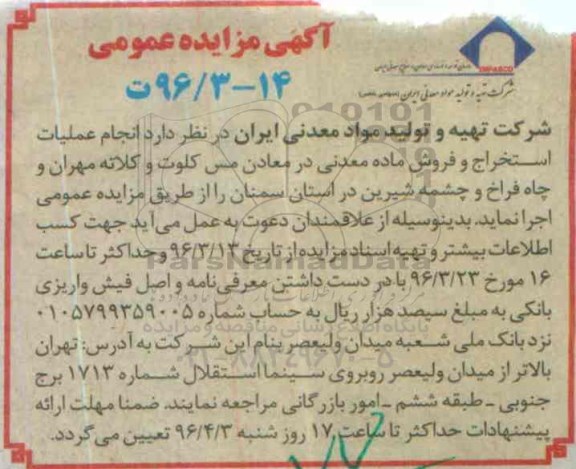 آگهی مزایده عمومی
۹۶/۳-۱۴ت
IMPASCO
شرکت تهیه و تولید مواد معدنی ایران
شرکت تهیه و تولید مواد معدنی ایران در نظر دارد انجام عملیات
استخراج و فروش ماده معدنی در معادن مس کلوت و کلاته مهران و
چاه فراخ و چشمه شیرین در استان سمنان را از طریق مزایده عمومی
اجرا نماید. بدینوسیله از علاقمندان دعوت به عمل می آید جهت کسب
اطلاعات بیشتر و تهیه اسناد مزایده از تاریخ ۹۶/۳/۱۳ و حداکثر تا ساعت
۱۶ مورخ ۹۶/۳/۲۳ با در دست داشتن معرفی نامه و اصل فیش واریزی
بانکی به مبلغ سیصد هزار ریال به حساب شماره ۰۱۰۵۷۹۹۳۵۹۰۰۵
نزد بانک ملی شعبه میدان ولیعصر بنام این شرکت به آدرس: تهران
بالاتر از میدان ولیعصر روبروی سینما استقلال شماره ۱۷۱۳ برج
جنوبی - طبقه ششم - امور بازرگانی مراجعه نمایند. ضمنا مهلت ارائه
پیشنهادات حداکثر تا ساعت ۱۷ روز شنبه ۹۶/۴/۳ تعیین می گردد.
ParsNamadData
پایگاه اطلاع رسانی مناقصه و مزایده